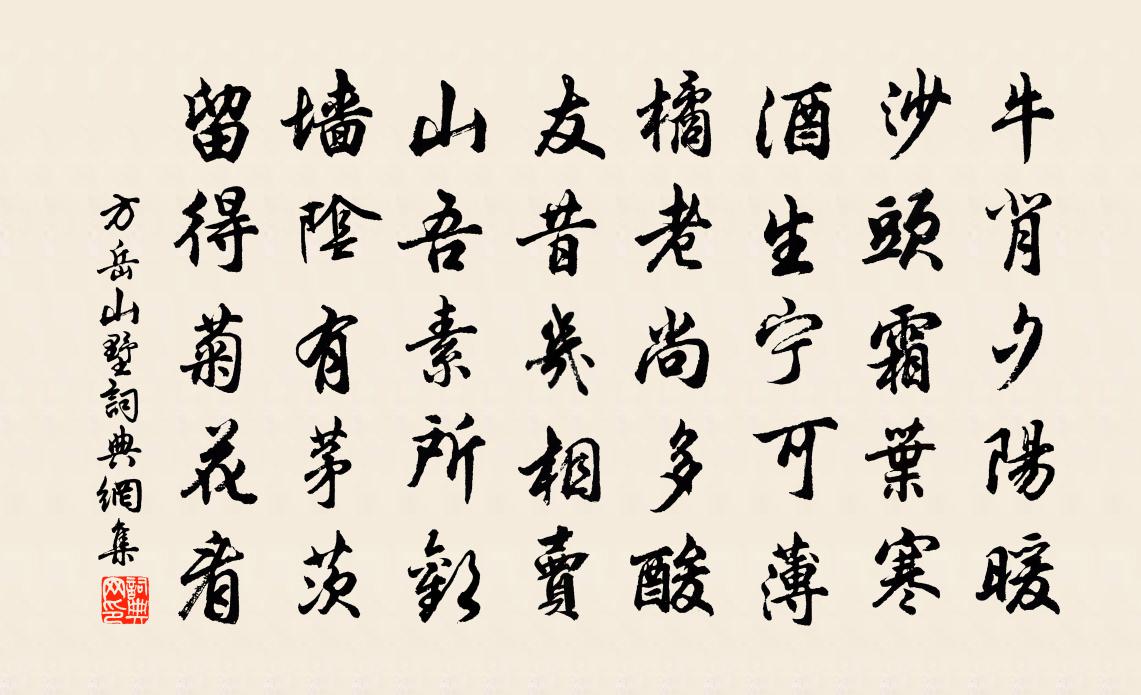 牛背夕陽暖
沙頭霜葉寒
酒生宁可薄
橘老尚多酸
友昔幾相賣
山吾素所歡
墙陰有茅茨
留得菊花看
方岳山墅詞典網集
詞典网印